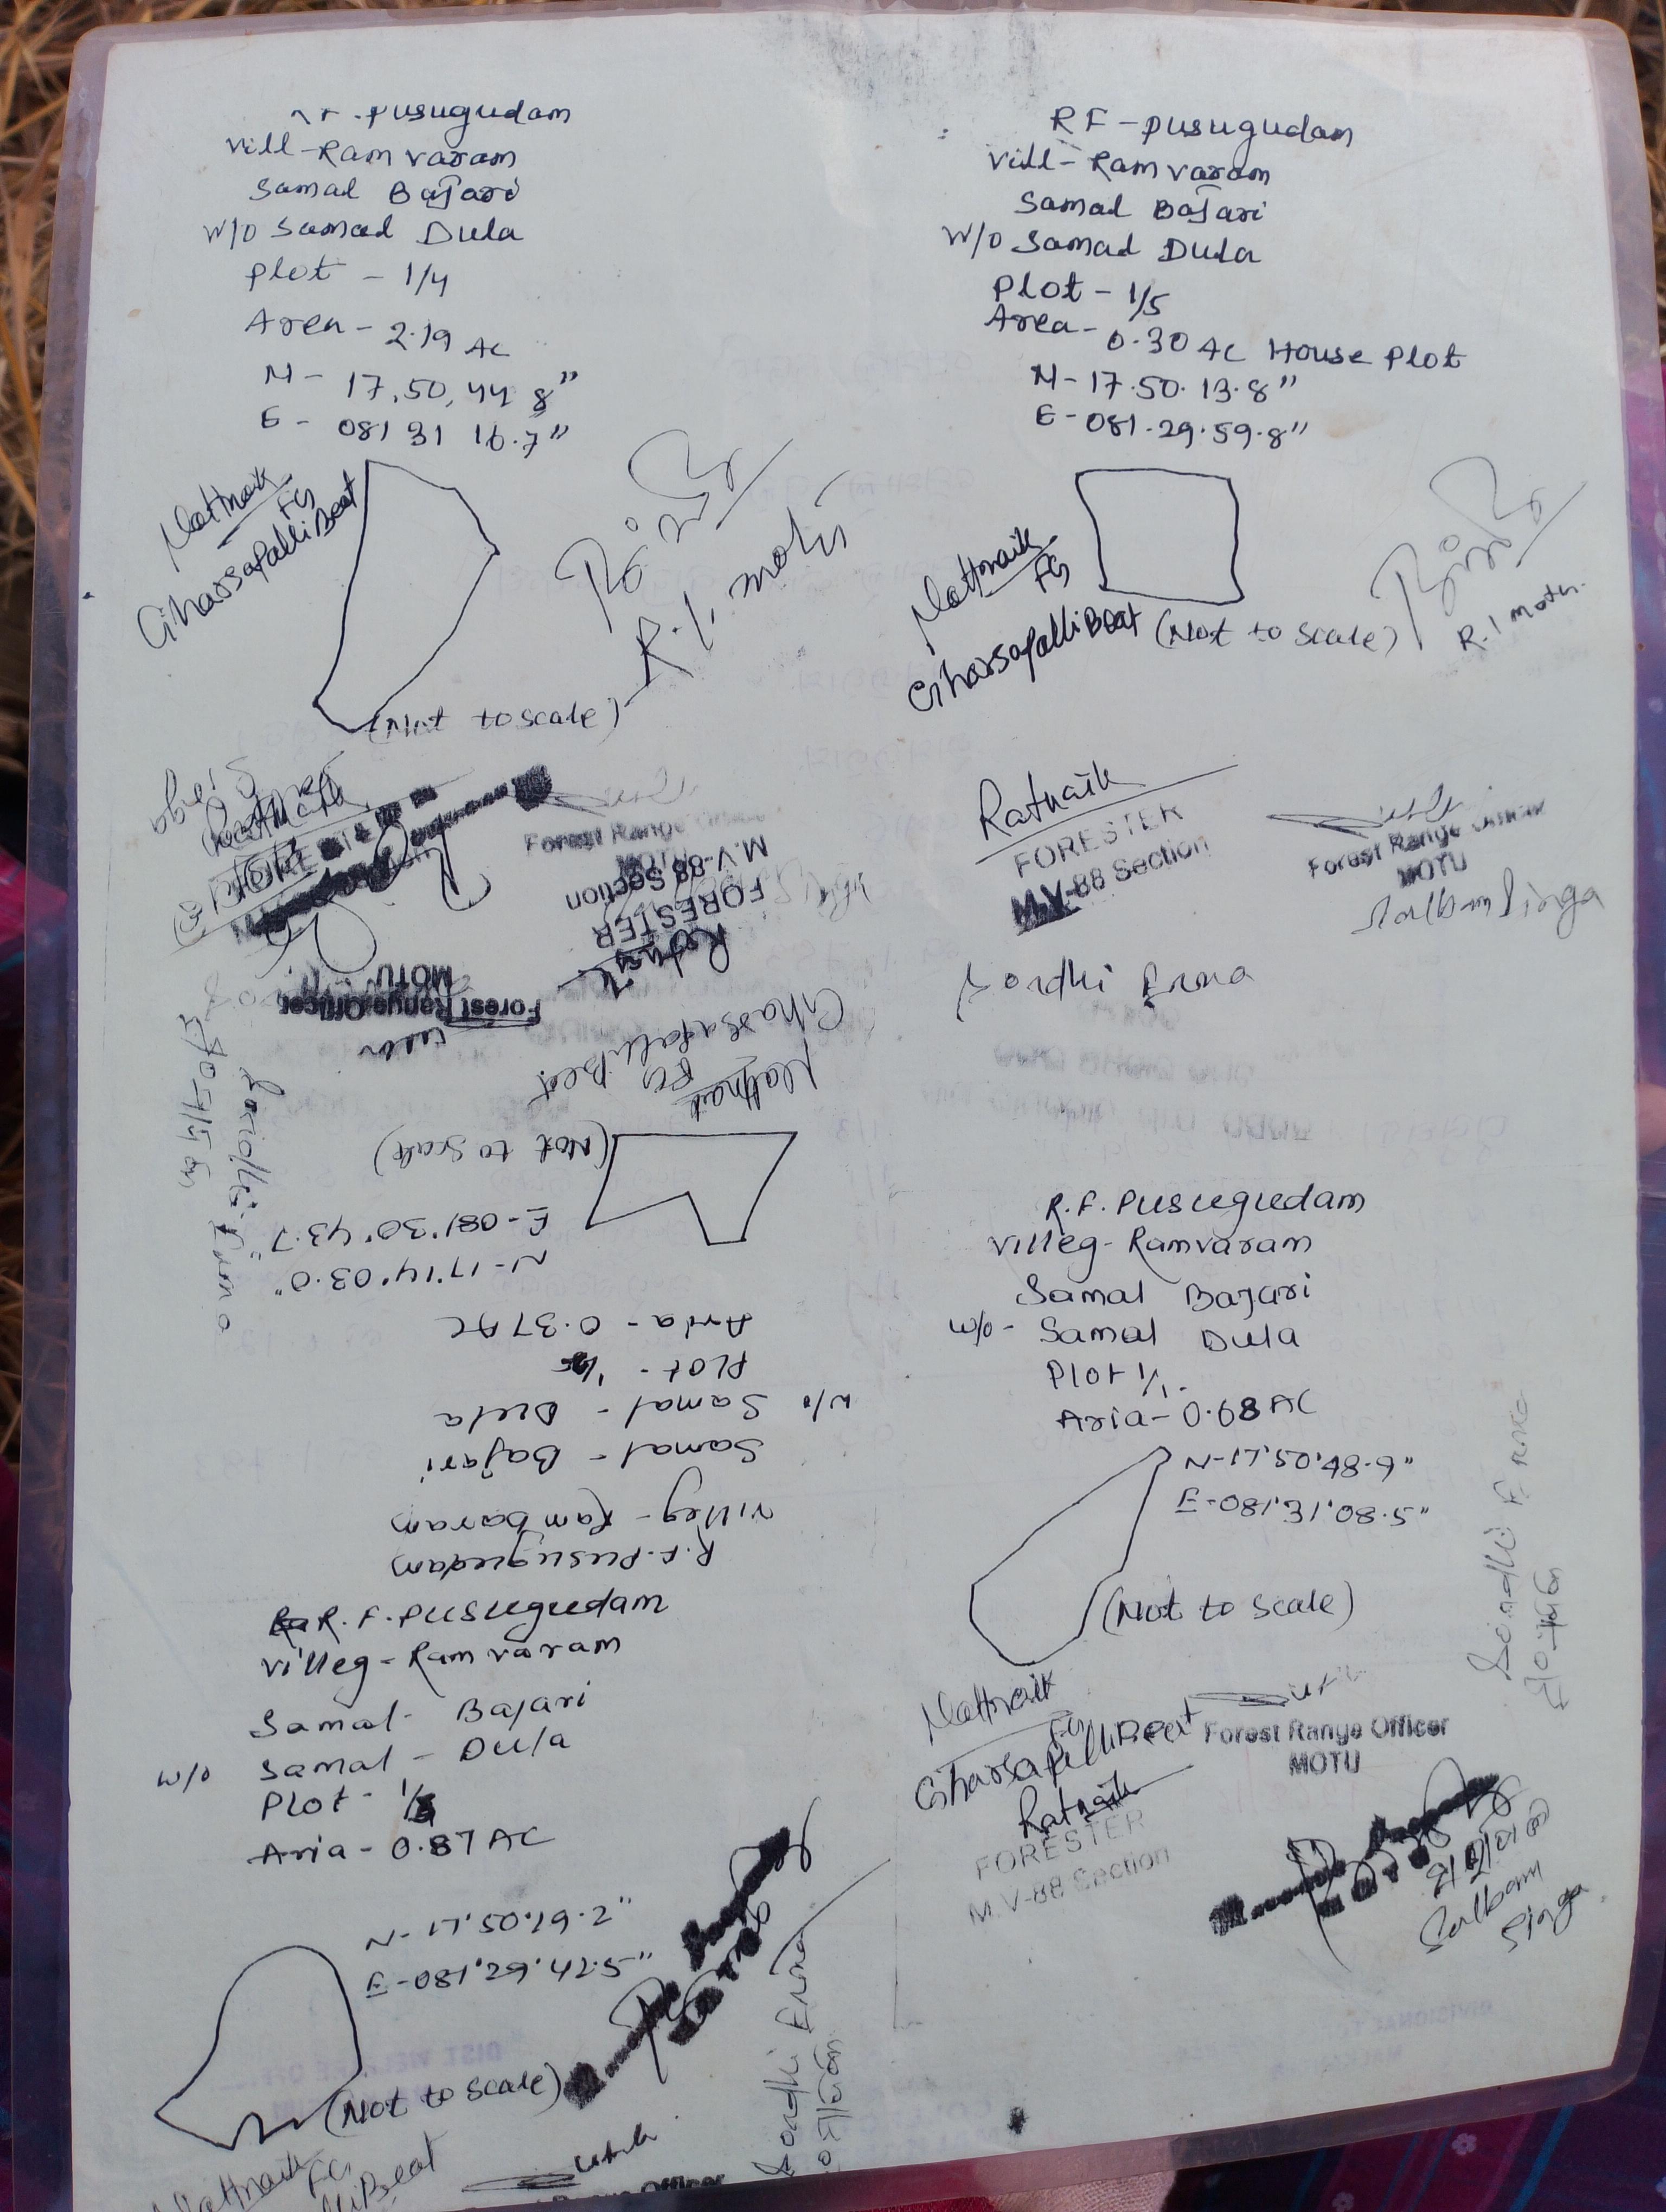 RF-pusugudam
vill-Ram varam
Samal Bajari
w/o Samad Dula
plot - 1/4
Area - 2.19 AC
N- 17,50,44 8"
E- 081 31 16.7"
Nattnaik
FG
Gharsapalli Beat
R.I. motu
(Not to scale)
RF-pusugudam
vill-Ram varam
Samal Bajari
w/o Samad Dula
Plot - 1/5
Area- 0.30 AC House Plot
N-17.50.13.8"
E-081.29.59.8"
Nattnaik
FG
Gharsapalli Beat
(Not to scale)
R.I motu.
Forest Range Officer
MOTU
M.V-88 Section
FORESTER
Ratnaik
Forest Range Officer
MOTU
Ratnaik
FORESTER
M.V-88 Section
Forest Range Officer
MOTU
Salbam Singa
Sondhi Erma
Gharsapalli Beat
FG
Nattnaik
(Not to scale)
E-081'30'43.7"
N-17'14'03.0"
Aria- 0.37 AC
Plot-
w/o Samal - Dula
Samal - Bajari
Villeg- Rambaram
R.F. Pusuguedam
R.F. Pusuguedam
Villeg- Ramvaram
Samal Bajari
w/o- Samal Dula
Plot 1/1.
Aria- 0.68 AC
N-17'50'48.9"
E-081'31'08.5"
(Not to scale)
Nattnaik
FG
Gharsapalli Beat
Ratnaik
FORESTER
M.V-88 Section
Forest Range Officer
MOTU
Salbam
Singa
Sondhi Erma
R.F. Pusuguedam
Villeg- Ramvaram
Samal- Bajari
w/o Samal - Dula
Plot-
Aria- 0.87 AC
N-17'50'19.2"
E-081'29'47.5"
(Not to scale)
Nattnaik
FG
Beat
Sondhi Erma
Officer